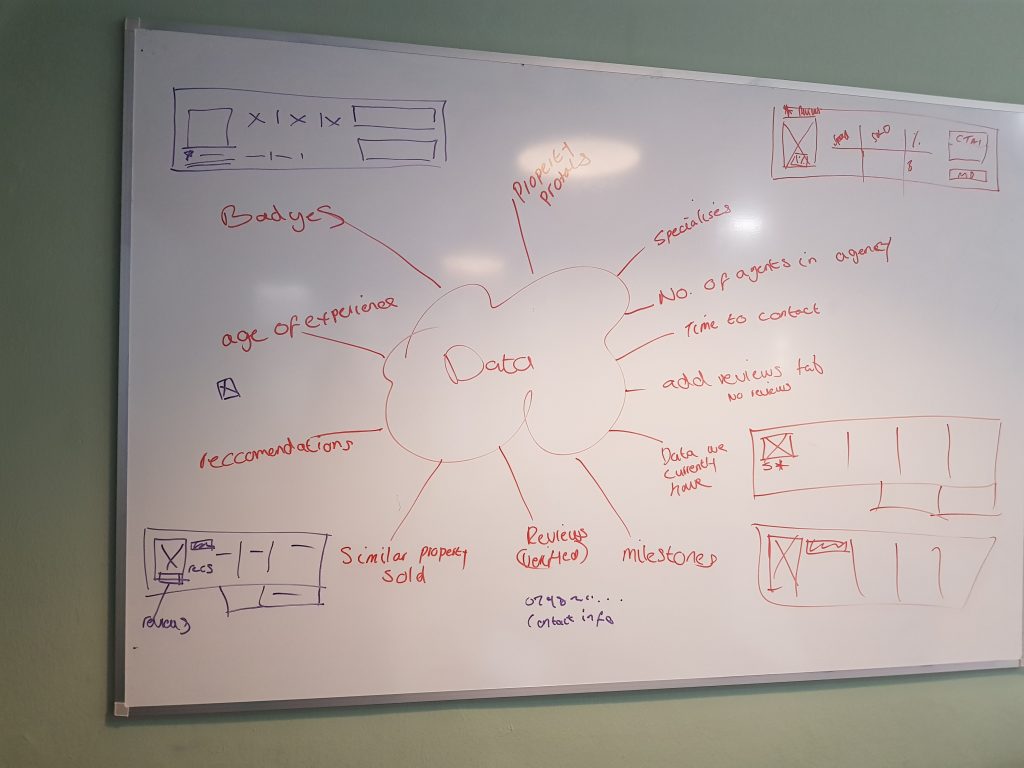 Badges
Property
Specialises
No. of agents in agency
age of experience
Time to contact
Data
add reviews tab
No reviews
reccomendations
Data we
currently
have
Similar property
sold
Reviews
(verified)
milestones
Contact info
%
CTA1
5*